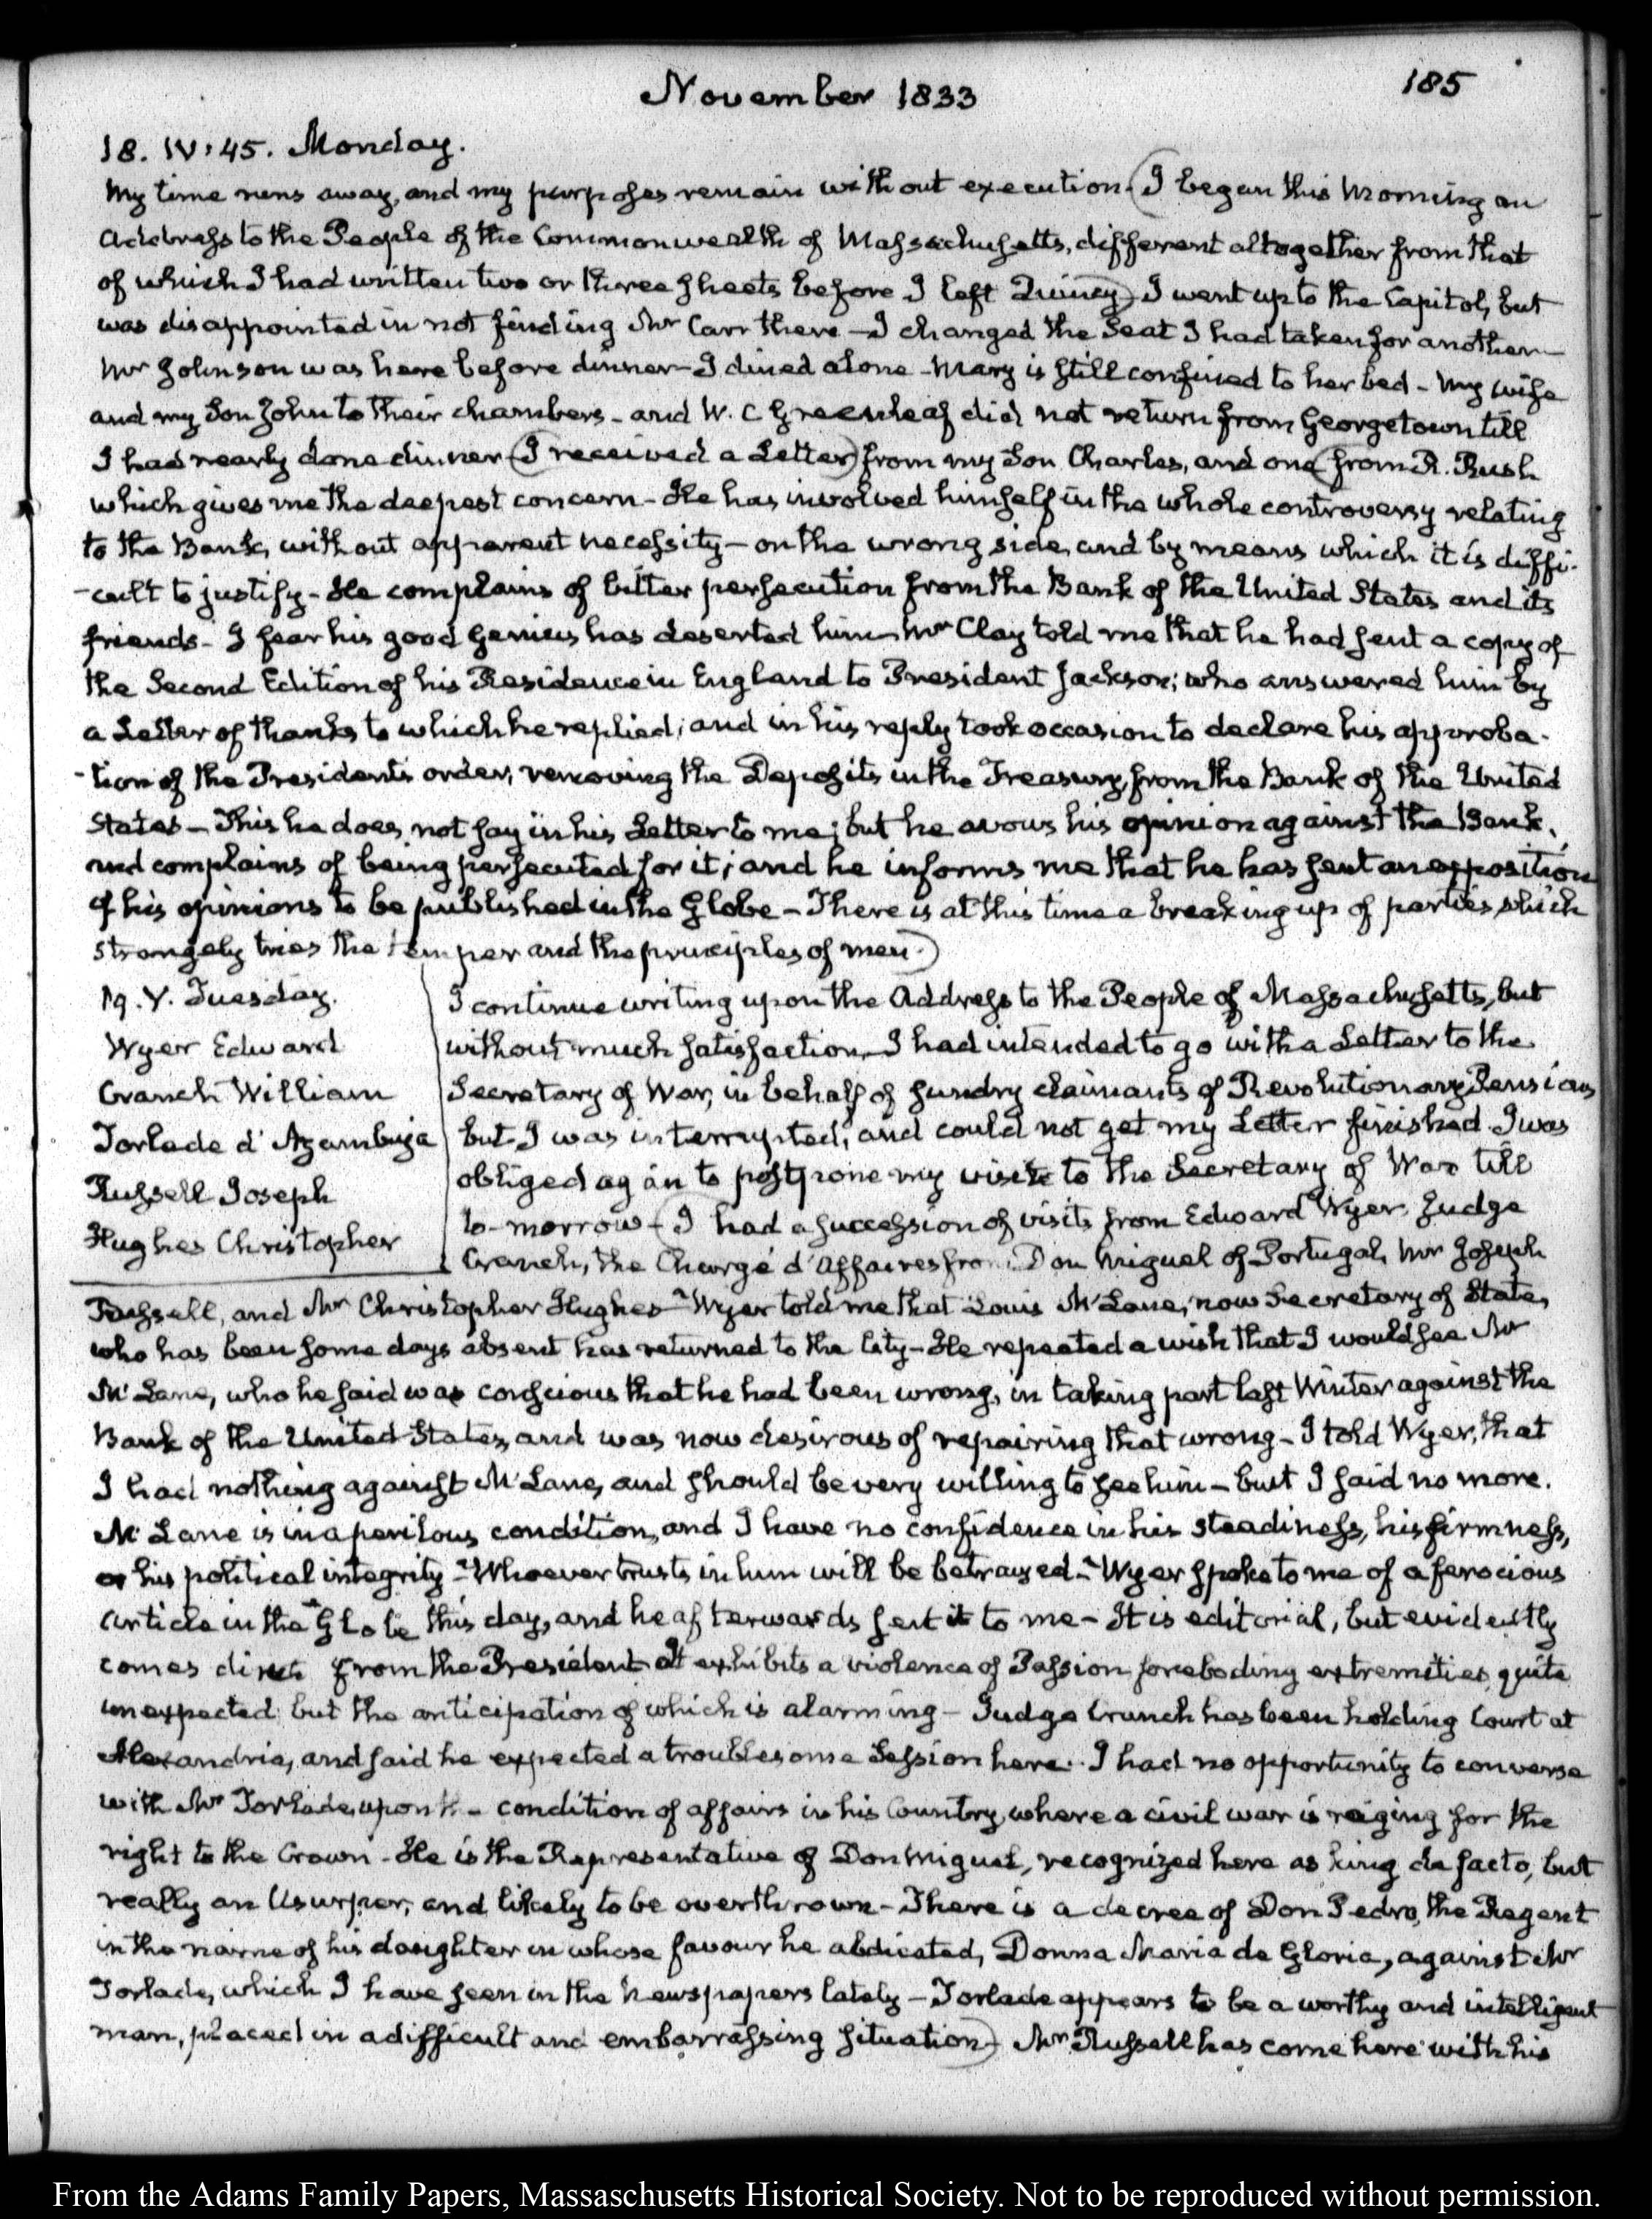 November 1833
185
18. IV:45. Monday.
My time runs away, and my purposes remain without execution. (I began this Morning an
Address to the People of the Commonwealth of Massachusetts, different altogether from that
of which I had written two or three sheets before I left Quincy) I went up to the Capitol, but
was disappointed in not finding Mr Carr there — I changed the Seat I had taken for another —
Mr Johnson was here before dinner — I dined alone - Mary is still confined to her bed - My wife
and my Son John to their chambers - and W. C Greenleaf did not return from Georgetown till
I had nearly done dinner (I received a Letter) from my Son Charles, and one (from R. Rush
which gives me the deepest concern - He has involved himself in the whole controversy relating
to the Bank, without apparent necessity — on the wrong side, and by means which it is diffi-
-cult to justify - He complains of bitter persecution from the Bank of the United States and its
friends - I fear his good Genius has deserted him - Mr Clay told me that he had sent a copy of
the Second Edition of his Residence in England to President Jackson; who answered him by
a Letter of thanks to which he replied; and in his reply took occasion to declare his approba-
-tion of the President's order, removing the Deposits in the Treasury, from the Bank of the United
States — This he does not say in his Letter to me; but he avows his opinion against the Bank,
and complains of being persecuted for it; and he informs me that he has sent an exposition
of his opinions to be published in the Globe — There is at this time a breaking up of parties, which
strangely tries the temper and the principles of men.)
19. V. Tuesday.
Wyer Edward
Cranch William
Torlade d'Azambuja
Russell Joseph
Hughes Christopher
I continue writing upon the Address to the People of Massachusetts, but
without much satisfaction — I had intended to go with a Letter to the
Secretary of War, in behalf of sundry claimants of Revolutionary Pensions
but I was interrupted, and could not get my Letter finished. I was
obliged again to postpone my visit to the Secretary of War till
to-morrow - (I had a succession of visits from Edward Wyer, Judge
Cranch, the Chargé d'Affaires from Don Miguel of Portugal, Mr Joseph
Russell, and Mr Christopher Hughes - Wyer told me that Louis McLane, now Secretary of State,
who has been some days absent has returned to the City - He repeated a wish that I would see Mr
McLane, who he said was conscious that he had been wrong, in taking part last Winter against the
Bank of the United States, and was now desirous of repairing that wrong - I told Wyer, that
I had nothing against McLane, and should be very willing to see him - but I said no more.
McLane is in a perilous condition, and I have no confidence in his steadiness, his firmness,
or his political integrity - Whoever trusts in him will be betrayed - Wyer spoke to me of a ferocious
article in the Globe this day, and he afterwards sent it to me - It is editorial, but evidently
comes direct from the President. It exhibits a violence of Passion foreboding extremities, quite
unexpected but the anticipation of which is alarming - Judge Cranch has been holding Court at
Alexandria, and said he expected a troublesome Session here. I had no opportunity to converse
with Mr Torlade, upon the condition of affairs in his Country, where a civil war is raging for the
right to the Crown - He is the Representative of Don Miguel, recognized here as king de facto, but
really an Usurper, and likely to be overthrown - There is a decree of Don Pedro, the Regent
in the name of his daughter in whose favour he abdicated, Donna Maria da Gloria, against Mr
Torlade, which I have seen in the Newspapers lately — Torlade appears to be a worthy and intelligent
man, placed in a difficult and embarrassing situation) Mr Russell has come here with his
From the Adams Family Papers, Massaschusetts Historical Society. Not to be reproduced without permission.